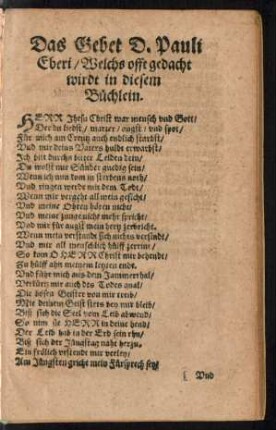 Das Gebet D. Pauli
Eberi / Welchs offt gedacht
wirdt in diesem
Büchlein.
HERR Jhesu Christ war mensch vnd Gott /
Der du liedst / marter / angst / vnd spot /
Für mich am Creutz auch endlich starbst /
Vnd mir deins Vaters huldt erwarbst /
Ich bitt durchs bitter Leiden dein /
Du wolst mir Sünder gnedig sein /
Wenn ich nun kom in sterbens noth /
Vnd ringen werde mit dem Todt /
Wenn mir vergeht all mein gesicht /
Vnd meine Ohren hören nicht /
Vnd meine zunge nicht mehr spricht /
Vnd mir für angst mein hertz zerbricht.
Wenn mein verstandt sich nichts versindt /
Vnd mir all menschlich hülff zerrint /
So kom O HERR Christ mir behende /
Zu hülff ahn meinem letzten ende.
Vnd führ mich aus dem Jammerthal /
Verkürtz mir auch des Todes qual /
Die bösen Geister von mir treib /
Mit deinem Geist stets bey mir bleib /
Biß sich die Seel vom Leib abwend /
So nim sie HERR in deine hend /
Der Leib hab in der Erd sein rhu /
Biß sich der Jüngstag naht herzu.
Ein frölich vrstende mir verley /
Am Jüngsten gricht mein Fürsprech sey
Vnd